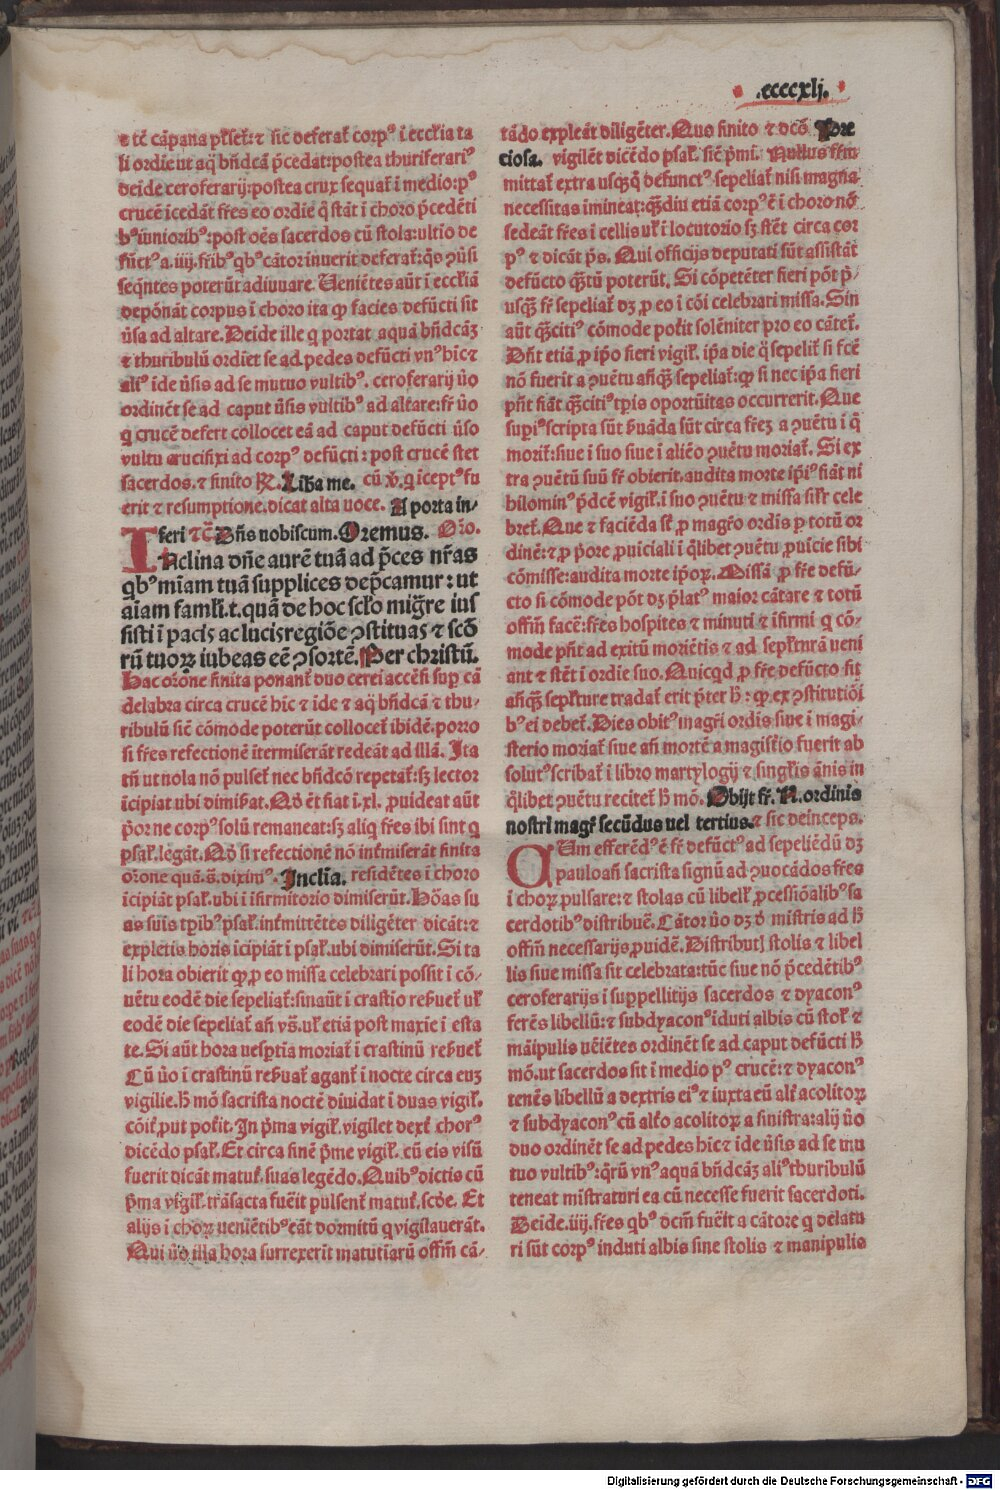 .ccccxlj.
⁊ tē cāpana pľseť:⁊ sic deferať corpꝰ ī ecclīa ta
li ordīe ut aq̄ bn̄dcā p̄cedat:postea thuriferariꝰ
deīde ceroferarij:postea crux sequať ī medio:pꝰ
crucē īcedāt fr̄es eo ordīe q̄ stāt ī choro p̄cedēti
bꝰ iuniorib.ꝰ:post oēs sacerdos cū stola:ultīo de
fūctꝰ a .iiij. fr̄ibꝰ qbꝰ cātor īiuerit deferať:q̄s ꝯūsi
seq̄ntes poterūt adiuuare. Ueniētes aūt ī ecclīā
depōnāt corpus ī choro ita ꝙ facies defūcti sit
ūsa ad altare. Deīde ille q portat aquā bn̄dcāꝫ
⁊ thuribulū ordīet se ad pedes defūcti vnꝰ hīc ⁊
aliꝰ īde ūsis ad se mutuo vultibꝰ. ceroferarij ūo
ordinēt se ad caput ūsis vultibꝰ ad altare:fr̄ ūo
q crucē defert collocet eā ad caput defūcti ūso
vultu crucifixi ad corpꝰ defūcti : post crucē stet
sacerdos. ⁊ finito ℞. Liƀa me. cū ꝟ. q īceptꝰ fu
erit ⁊ resumptione. dicat alta uoce. A porta in-
feri ⁊c̄ Dn̄s nobiscum. Oremus. Or̄o.
INclina dn̄e aurē tuā ad p̄ces nr̄as
qbꝰ mīam tuā supplices dep̄camur : ut
aīam famľi. t. quā de hoc scľo migr̄e ius
sisti ī pacis ac lucis regiōe ꝯstituas ⁊ scō
rū tuoꝝ iubeas eē ꝯsortē. Per christū.
Hac or̄one finita ponanť duo cerei accēsi suꝑ cā
delabra circa crucē hīc ⁊ īde ⁊ aq̄ bn̄dcā ⁊ thu-
ribulū sicē cōmode poterūt collocet ibidē. porro
si fr̄es refectionē ītermiserāt redeāt ad illā. Ita
tn̄ ut nola nō pulseť nec bn̄dcō repetať:sꝫ lector
īcipiat ubi dimiƀat. Nō ēt fiat ī .xl. ꝓuideat aūt
p̄or ne corpꝰ solū remaneat:sꝫ aliq fr̄es ibi sint q
psaľ. legāt. Nō si refectionē nō inťmiserāt finita
or̄one quā. s̄. diximꝰ. Inclīa. residētes ī choro
īcipiāt psaľ. ubi ī īfirmitorio dimiserūt. Hōas su
as suis tꝑibꝰ psaľ. inťmittētes diligēter dicāt:⁊
expletis horis īcipiāt ī psaľ. ubi dimiserūt. Si ta
li hora obierit ꝙ ꝓ eo missa celebrari possit ī cō-
uētu eodē die sepeliať:sinaūt ī crastīo reƀueť uľ
eodē die sepeliať an̄ vs̄. uľ etiā post maxīe ī esta
te. Si aūt hora uesꝑtīa moriať ī crastinū reƀueť
Cū ūo ī crastinū reƀuať aganť ī nocte circa euꝫ
vigilie. h̄ mō sacrista noctē diuidat ī duas vigiľ.
cōiť ꝓut poťit. In p̄ma vigiľ. vigilet dexť chorꝰ
dicēdo psaľ. Et circa finē p̄me vigiľ. cū eis visū
fuerit dicāt matuť. suas legēdo. Quibꝰ dictis cū
p̄ma vigiľ. trāsacta fueīt pulsenť matuť. scōe. Et
alijs ī choꝝ ueniētibꝰ eāt dormitū q vigilauerāt.
Qui ūo illa hora surrexerīt matutīarū offm̄ cā-
tādo expleāt diligēter. Quo finito ⁊ dcō Pre
ciosa. vigilēt dicēdo psaľ. sicē p̄mi. Nullus fr̄m
mittať extra usqꝫq defunctꝰ sepeliať nisi magna
necessitas īmineat:qꝫdiu etiā corpꝰ ē ī choro nō
sedeāt fr̄es ī cellis uľ ī locutorio sꝫ stēt circa cor
pꝰ ⁊ dicāt p̄s. Qui officijs deputati sūt assistāt
defūcto qꝫtū poterūt. Si cōpetēter fieri pōt p̄-
usqꝫ fr̄ sepeliať dꝫ ꝓ eo ī cōi celebrari missa. Sin
aūt qꝫcitiꝰ cōmode poťit solēniter pro eo cāteť.
Dn̄t etiā ꝓ ip̄o fieri vigiľ. ip̄a die q̄ sepeliť si fcē
nō fuerīt a ꝯuētu an̄qꝫ sepeliať:ꝙ si nec ip̄a fieri
pn̄t fiāt qꝫcitiꝰ tꝑis oportūitas occurrerit. Que
suꝑiꝰ scripta sūt ƀuāda sūt circa fr̄eꝫ a ꝯuētu ī q̄
moriť:siue ī suo siue ī aliēo ꝯuētu moriať. Si ex
tra ꝯuētū suū fr̄ obierit. audita morte ip̄iꝰ fiāt ni
hilominꝰ p̄dcē vigiľ. ī suo ꝯuētu ⁊ missa siľr cele
breť. Que ⁊ faciēda sť ꝓ magr̄o ordīs ꝑ totū or
dinē:⁊ ꝓ p̄ore ꝓuīciali ī qlibet ꝯuētu ꝓuīcie sibi
cōmisse:audita morte ip̄oꝝ. Missā ꝓ fr̄e defū-
cto si cōmode pōt dꝫ p̄latꝰ maior cātare ⁊ totū
offm̄ facē:fr̄es hospites ⁊ minuti ⁊ īfirmi q cō-
mode pn̄t ad exitū moriētis ⁊ ad sepľturā ueni
ant ⁊ stēt ī ordīe suo. Quicqd ꝓ fr̄e defūcto fit
an̄qꝫ sepľture tradať erit p̄ter h̄ : ꝙ ex ꝯstitutiōī
bꝰ ei debeť. Dies obitꝰ magr̄i ordīs siue ī magi-
sterio moriať siue an̄ mortē a magisťio fuerit ab
solutꝰ scribať ī libro martylogij ⁊ singľis ānis in
qlibet ꝯuētu reciteť h̄ mō. Obijt fr̄. N. ordinis
nostri magr̄ secūdus uel tertius. ⁊ sic deinceps.
CUm efferēdꝰ ē fr̄ defūctꝰ ad sepeliēdū dꝫ
pauloan̄ sacrista signū ad ꝯuocādos fr̄es
ī choꝝ pulsare:⁊ stolas cū libelľ ꝓcessiōalibꝰ sa
cerdotibꝰ distribuē. Cātor ūo dꝫ ď mīstris ad h̄
offm̄ necessarijs ꝓuidē. Distributꝭ stolis ⁊ libel
lis siue missa sit celebrata:tūc siue nō p̄cedētibꝰ
ceroferarijs ī suppellitijs sacerdos ⁊ dyaconꝰ
ferēs libellū:⁊ subdyaconꝰ īduti albis cū stoľ ⁊
māipulis uēiētes ordinēt se ad caput defūcti h̄
mō. ut sacerdos sit ī medio pꝰ crucē:⁊ dyaconꝰ
tenēs libellū a dextris eiꝰ ⁊ iuxta eū alť acolitoꝝ
⁊ subdyaconꝰ cū alťo acolitoꝝ a sinistra:alij ūo
duo ordinēt se ad pedes hīc ⁊ īde ūsis ad se mu
tuo vultibꝰ:q̄rū vnꝰ aquā bn̄dcāꝫ aliꝰ thuribulū
teneat mīstraturi ea cū necesse fuerit sacerdoti.
Deide .iiij. fr̄es qbꝰ dcm̄ fueīt a cātore q delatu
ri sūt corpꝰ induti albis sine stolis ⁊ manipulis
Digitalisierung gefördert durch die Deutsche Forschungsgemeinschaft - DFG